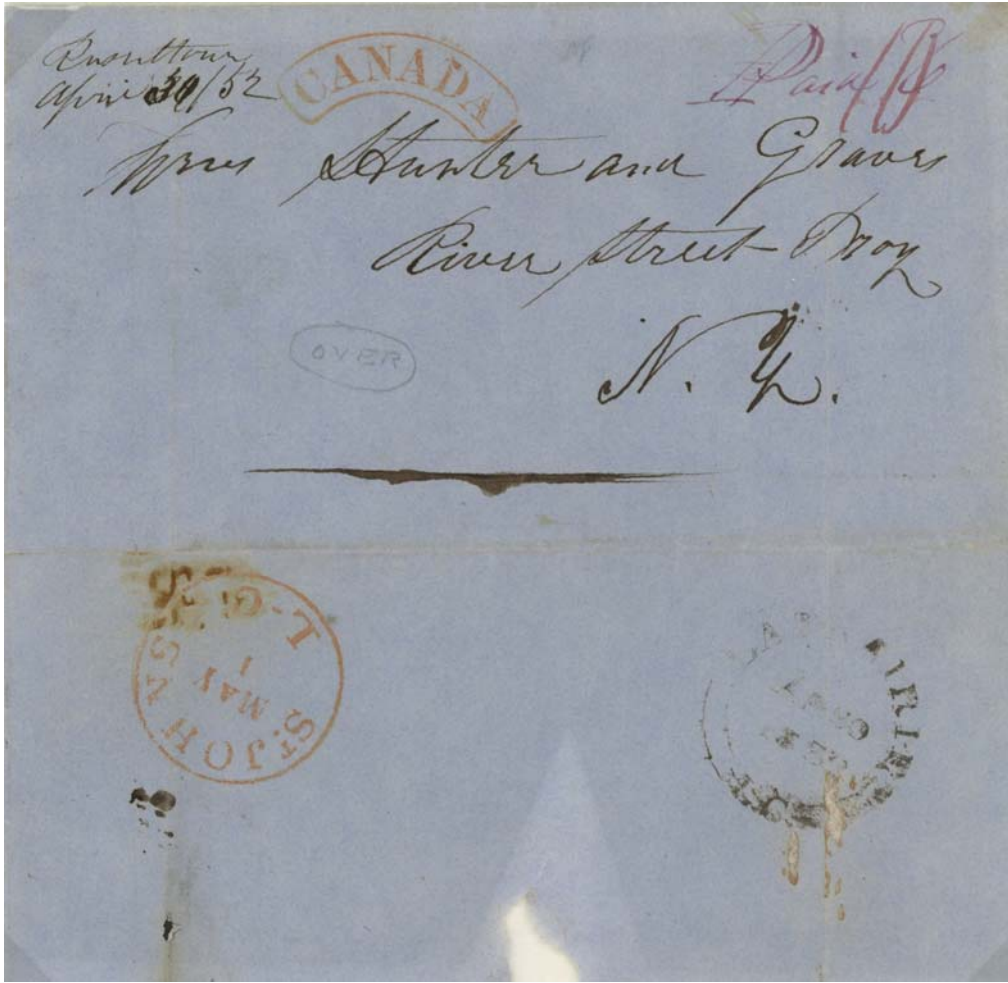 Russeltown
April 30/52
CANADA
Paid
Messrs Hunter and Graves
River Street Troy
N. Y.
OVER
ST. JOHNS L-C
MAY
1
LAPRAIRIE